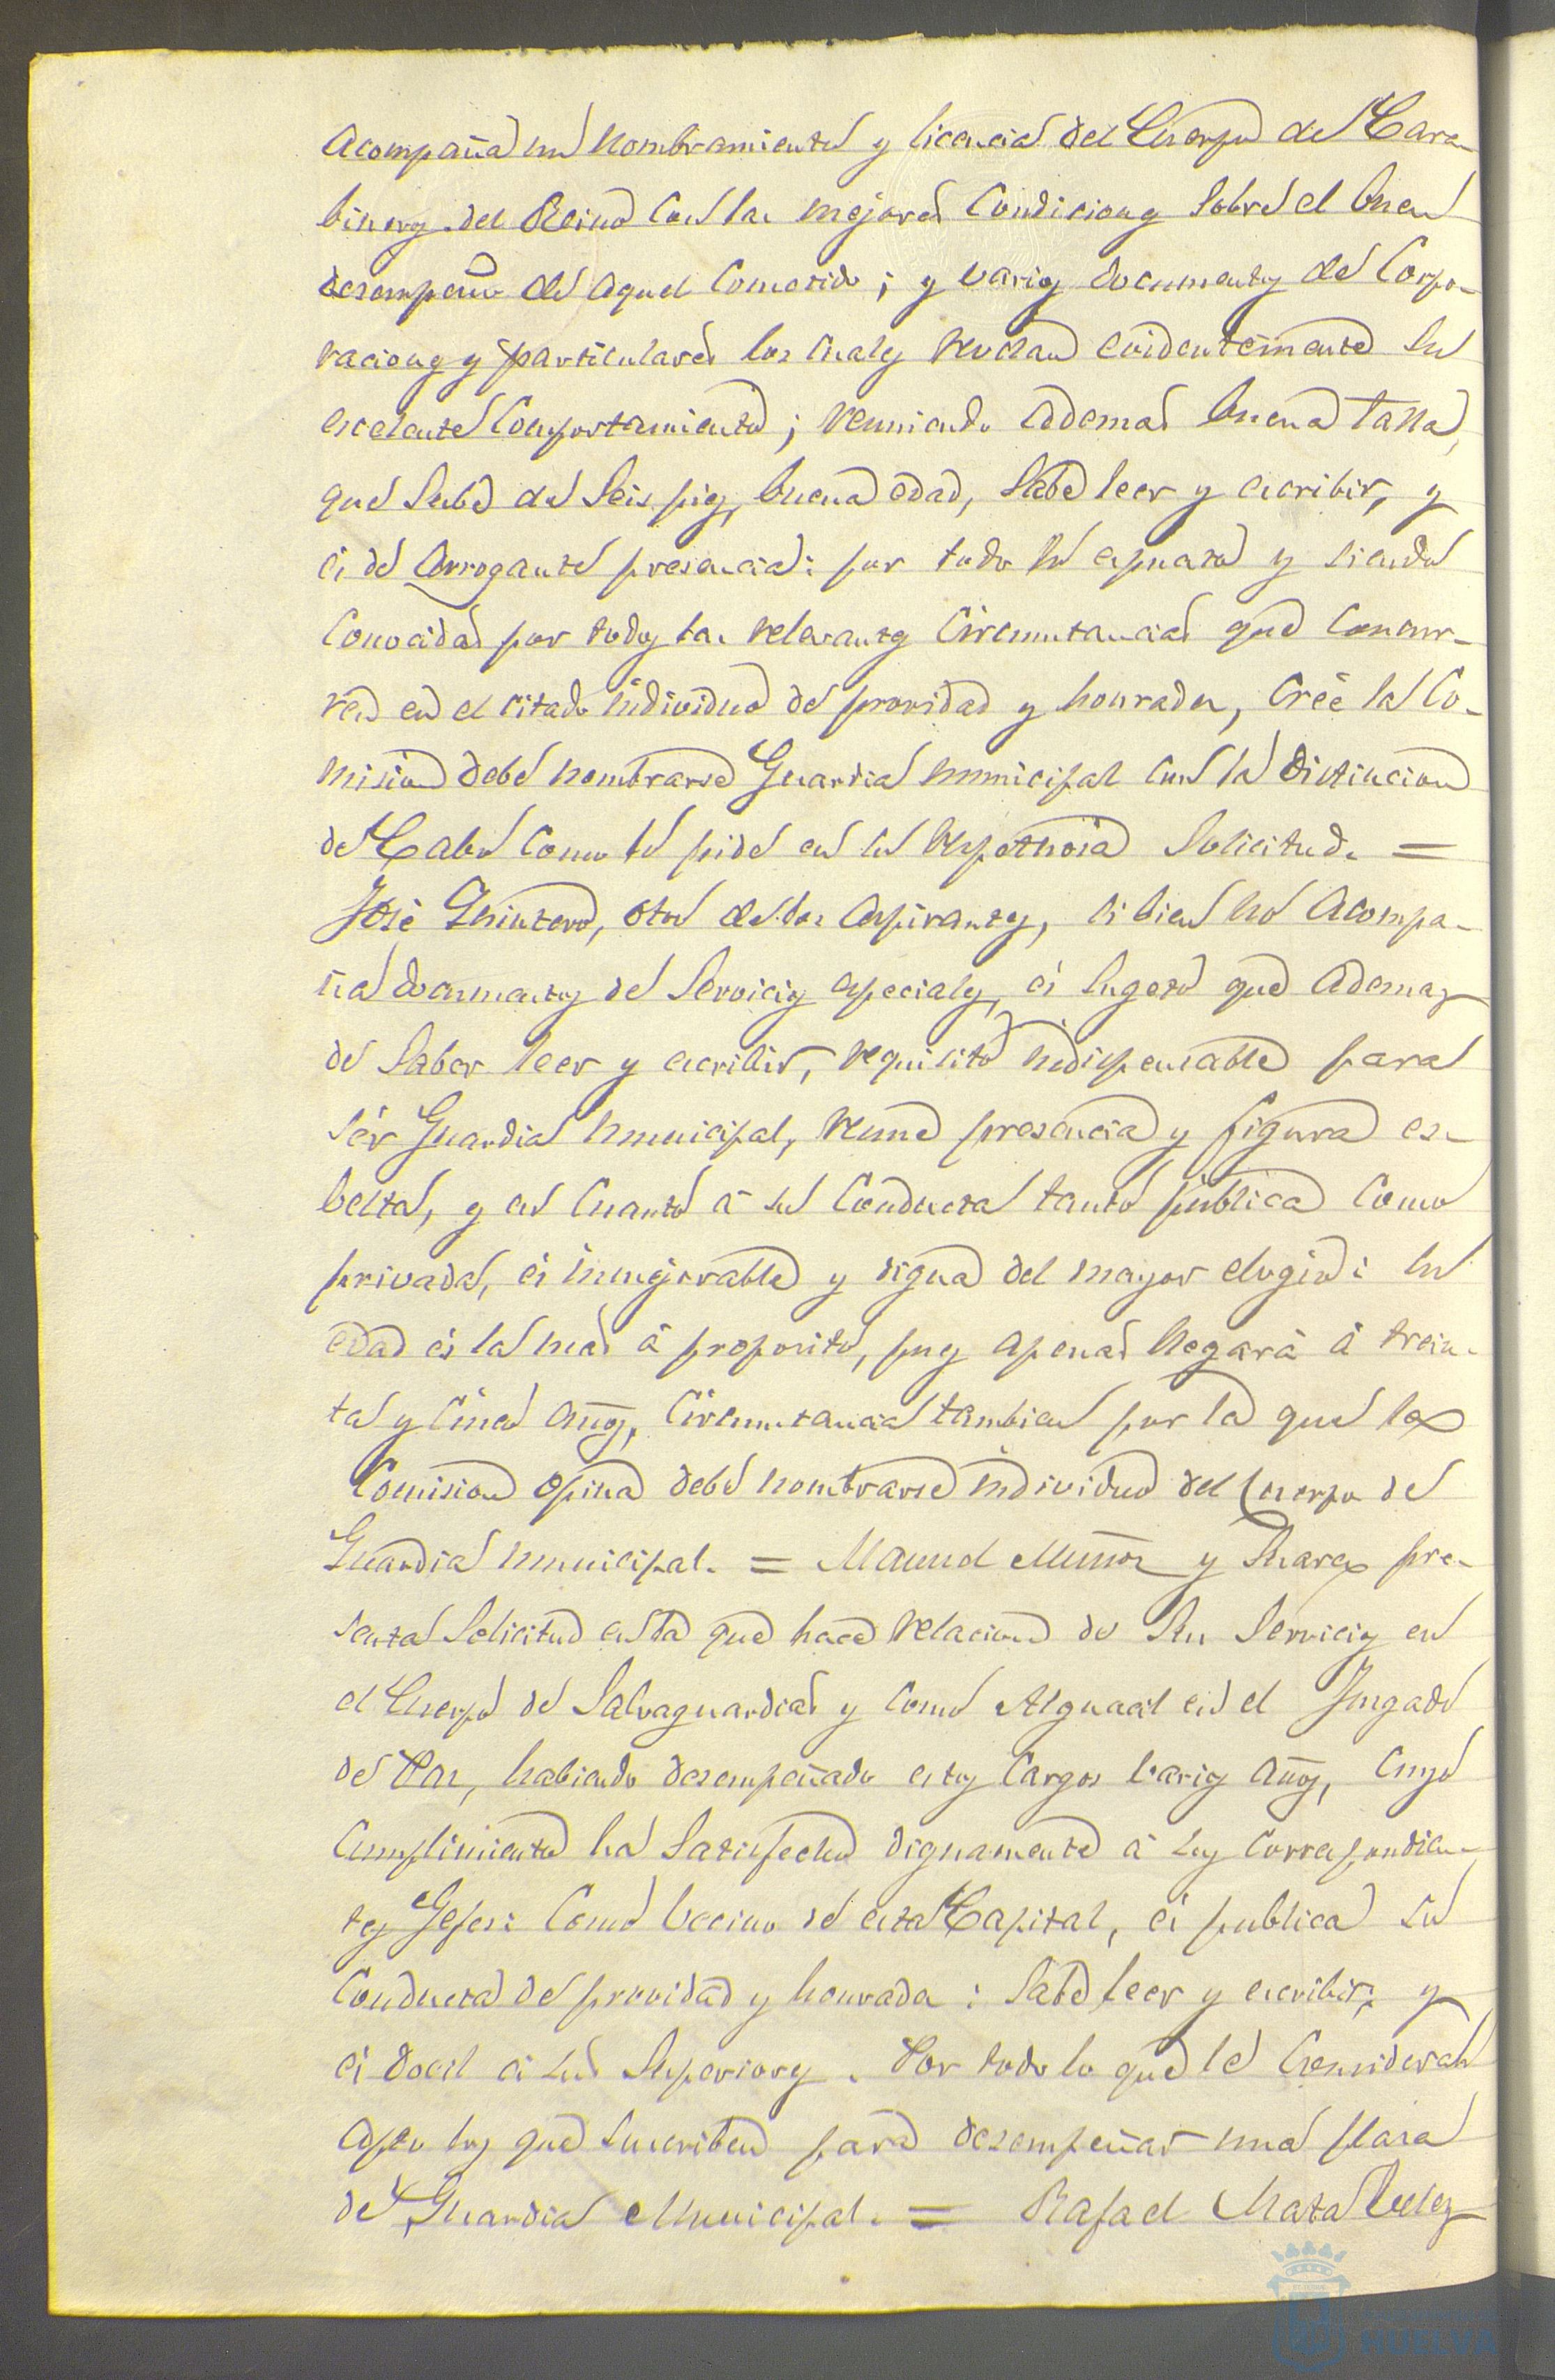 Acompaña un nombramiento y licencia del Cuerpo de Cara-
bineros del Reino con las mejores Condiciones sobre el buen
desempeño de aquel Cometido; y varios documentos de Corpo-
raciones y particulares los cuales revelan evidentemente su
escelente Comportamiento; reuniendo ademas buena talla,
que sube de seis pies, buena edad, sabe leer y escribir, y
es de arrogante presencia: por todo lo espuesto y siendo
Conocidas por todos las relevantes Circunstancias que concur-
ren en el citado individuo de providad y honradez, Creé la Co-
mision debe nombrarse Guardia municipal con la distincion
de Cabo como lo pide en su respetuosa Solicitud. =
José Quintero, otro de los Aspirantes, si bien no Acompa-
ña documentos de Servicios especiales, es sugeto que ademas
de Saber leer y escribir, requisito indispensable para
sér Guardia municipal, reune presencia y figura es-
belta, y en Cuanto á su Conducta tanto publica como
privada, es inmejorable y digna del mayor elogio: su
edad es la mas á proposito, pues apenas llegará á trein-
ta y Cinco años, Circunstancia tambien por la que la
Comision opina debe nombrarse individuo del Cuerpo de
Guardia municipal. = Manuel Muñoz y Suarez pre-
senta Solicitud en la que hace relacion de sus Servicios en
el Cuerpo de Salvaguardias y como Alguacil en el Juzgado
de Paz, habiendo desempeñado estos Cargos varios años, Cuyo
Cumplimiento ha Satisfecho dignamente á sus Correspondien-
tes Gefes: Como vecino de esta Capital, es publica su
Conducta de providad y honrada: Sabe leer y escribir; y
es docil á sus Superiores. Por todo lo que le Consideran
apto los que Suscriben para desempeñar una plaza
de Guardia Municipal. = Rafael Mata Velez
HUELVA